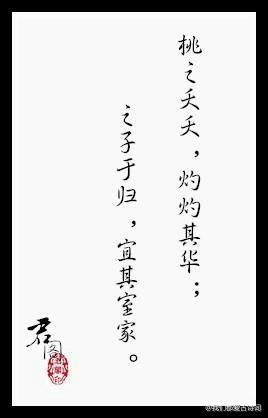 桃之夭夭，灼灼其华；
之子于归，宜其室家。
君阁
@我们都爱古诗词